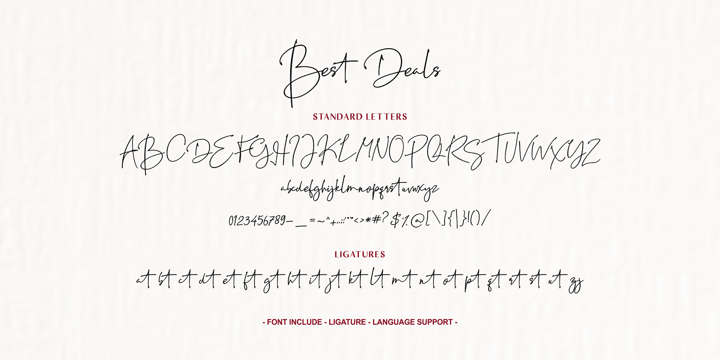 Best Deals
STANDARD LETTERS
ABCDEFGHIJKLMNOPQRSTUVWXYZ
abcdefghijklmnopqrstuvwxyz
0123456789-_=~^+.,:;'"*<>*#?$%@[\]{|}()/
LIGATURES
at bt ct dt et ft gt ht it jt kt lt mt nt ot pt qt rt st ut zy
- FONT INCLUDE - LIGATURE - LANGUAGE SUPPORT -